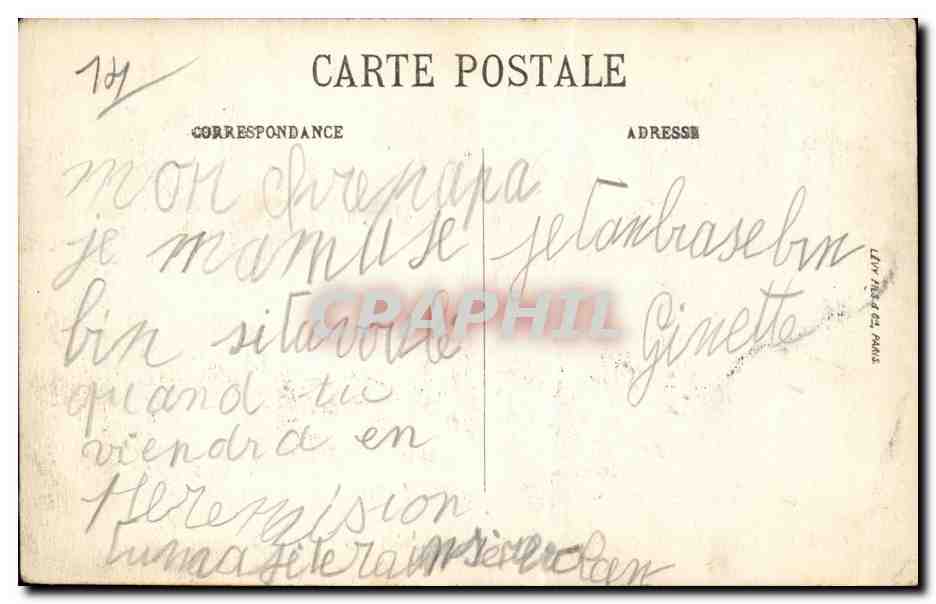 14
CARTE POSTALE
CORRESPONDANCE
ADRESSE
mon chre papa
je mamuse
bin si tu
quand tu
viendra en
permision
tu ma
je tanbrase bin
Ginette
LÉVY FILS & Cie, PARIS.
CPAPHIL